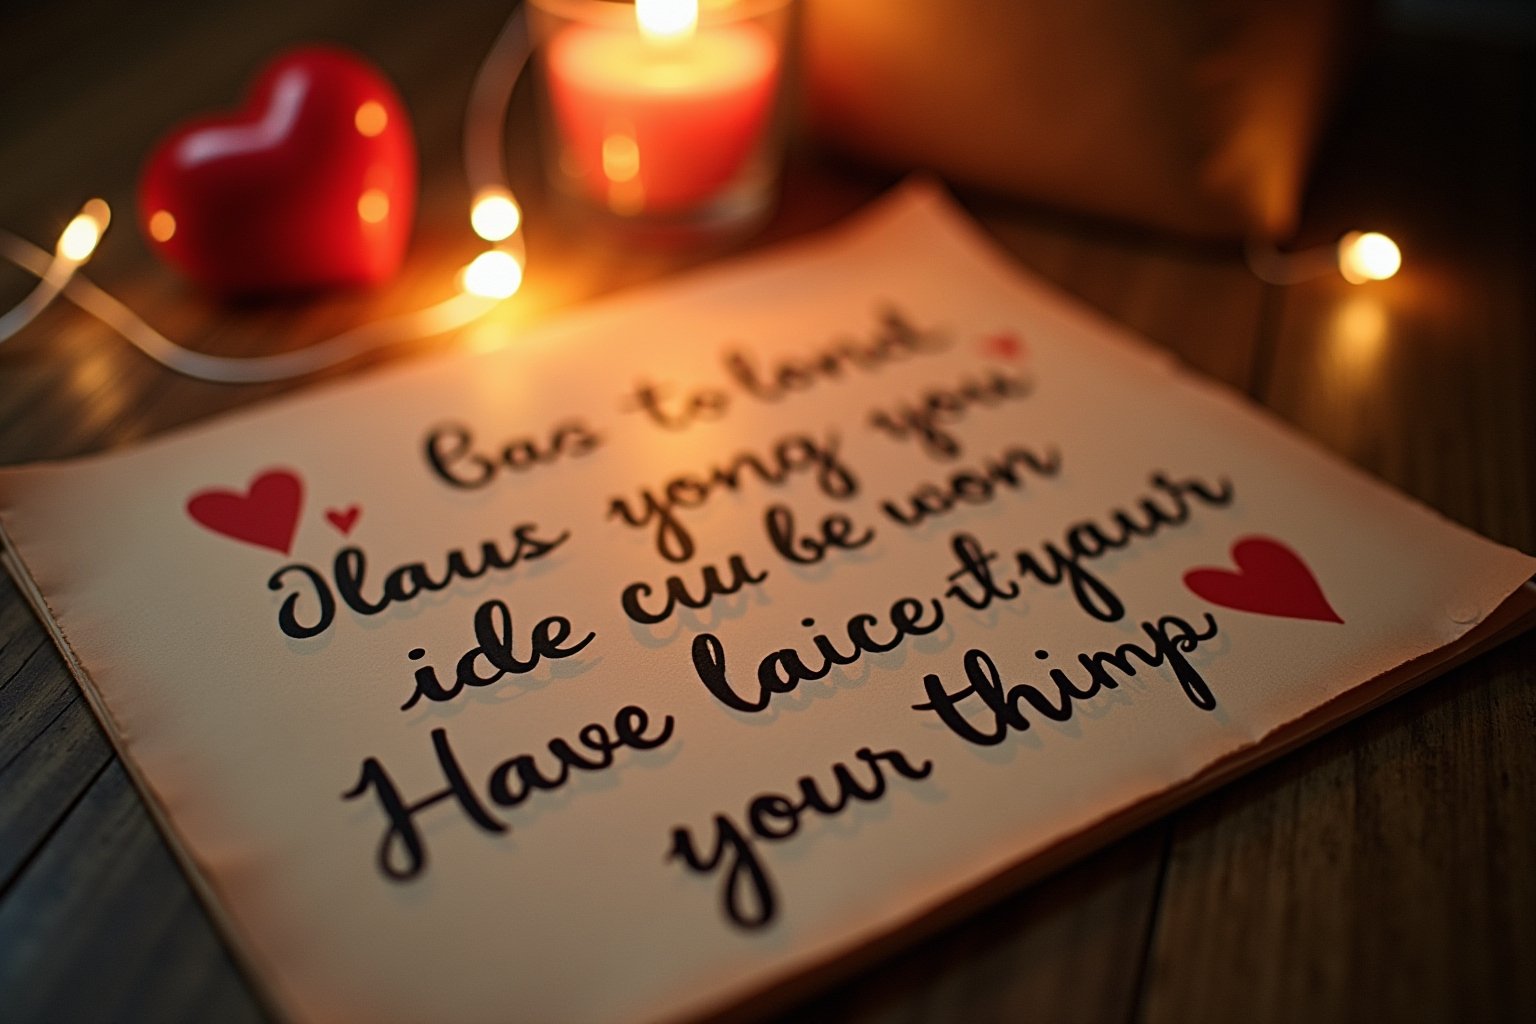 Bas to lond
Jlaus yong you
ide cuu be won
Have laice it your
your thimp